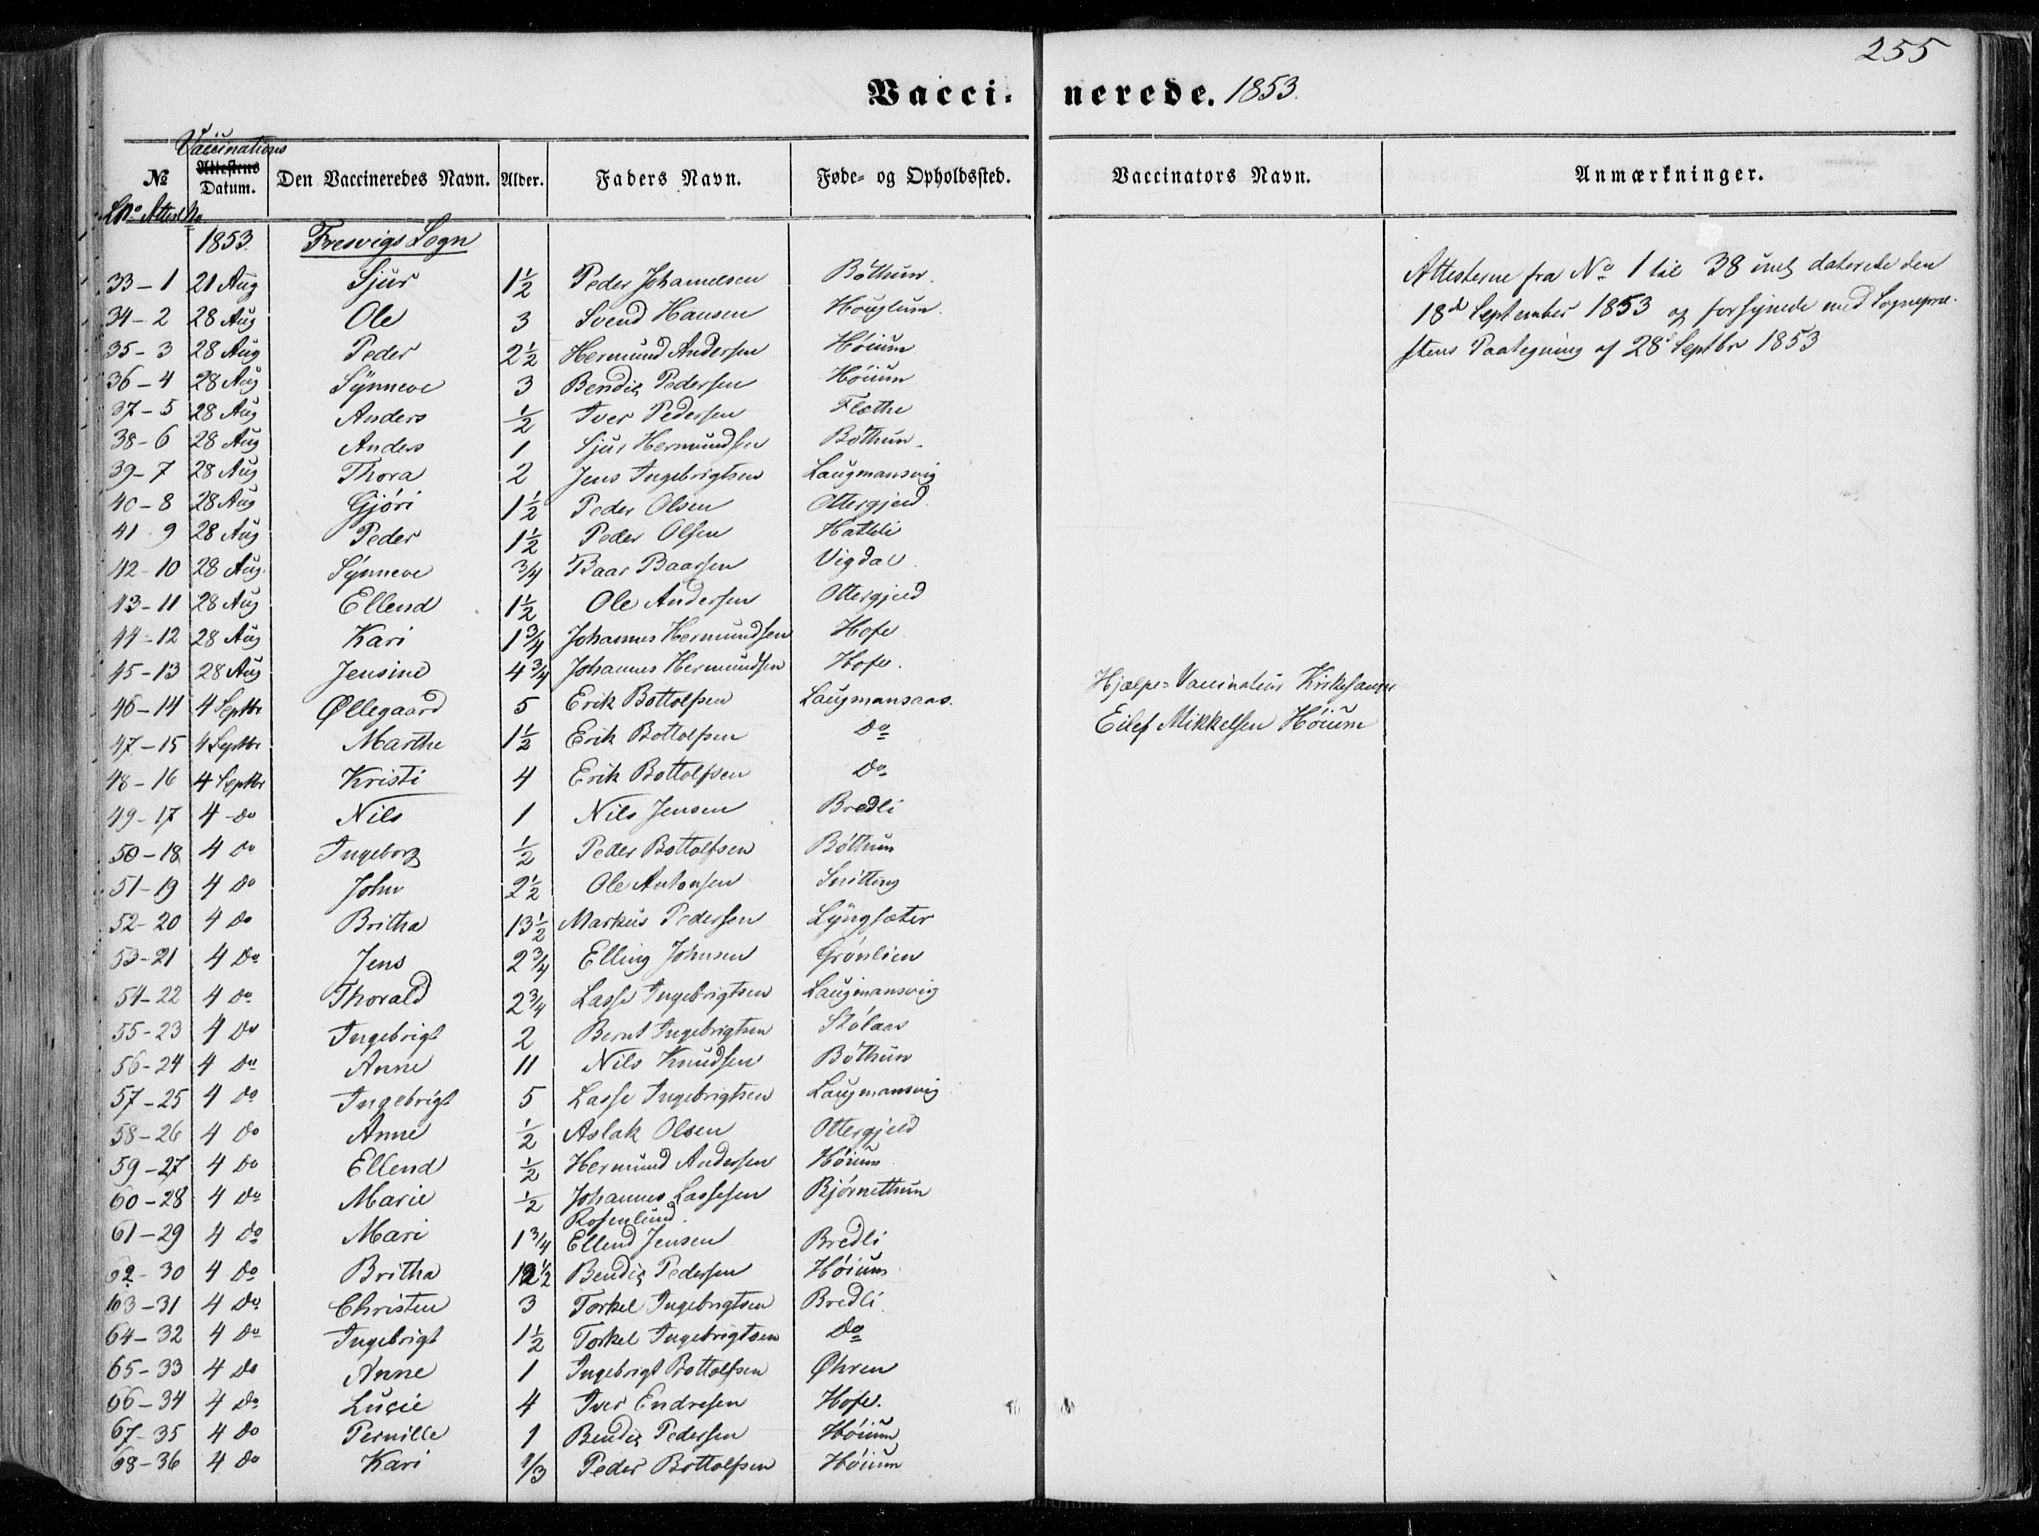 255
Vacci- nerede. 1853.
Vaccinations
№ Attestens Datum. Den Vaccineredes Navn. Alder. Faders Navn. Føde- og Opholdssted. Vaccinators Navn. Anmærkninger.
LNo Attest No
1853. Fresvigs Sogn
33 - 1 21 Aug Sjur 1½ Peder Johannesen Bøthun.
34 - 2 28 Aug Ole 3 Svend Hansen Houglum.
35 - 3 28 Aug Peder 2½ Hermund Andersen Høium
36 - 4 28 Aug Synneve 3 Bendix Pedersen Høium
37 - 5 28 Aug Anders ½ Iver Pedersen Flæthe
38 - 6 28 Aug Anders 1 Sjur Hermundsen Bøthun
39 - 7 28 Aug Thora 2 Jens Ingebrigtsen Laugmansvig
40 - 8 28 Aug Gjøri 1½ Peder Olsen Ottergjerd
41 9 28 Aug Peder 1½ Peder Olsen Hatleli
42 - 10 28 Aug. Synneve ¾ Baar Baarsen Vigdal
43 - 11 28 Aug Ellend 1½ Ole Andersen Ottergjerd
44 - 12 28 Aug Kari 1¾ Johannes Hermundsen Hofe
45 - 13 28 Aug Jensine 4¾ Johannes Hermundsen Hofe.
46 - 14 4 Septbr Øllegaard 5 Erik Bottolfsen Laugmansaas.
47 - 15 4 Septbr Marthe 1½ Erik Bottolfsen Do
48 - 16 4 Septbr Kristi 4 Erik Bottolfsen Do
49 - 17 4 Do Nils 1 Nils Jensen Bredli
50 - 18 4 Do Ingeborg ½ Peder Bottolfsen Bøthun
51 - 19 4 Do John 2½ Ole Antonsen Snitting
52 - 20 4 Do Britha 13½ Markus Pedersen Lyngsæter
53 - 21 4 Do Jens 2¾ Elling Johnsen Grønlien
54 - 22 4 Do Thorald 2¾ Lasse Ingebrigtsen Laugmansvig
55 - 23 4 Do Ingebrigt 2 Bernt Ingebrigtsen Stølaas
56 - 24 4 Do Anne 11 Nils Knudsen Bøthun
57 - 25 4 Do Ingebrigt 5 Lasse Ingebrigtsen Laugmansvig
58 - 26 4 Do Anne ½ Aslak Olsen Ottergjerd
59 - 27 4 Do Ellend ½ Hermund Andersen Høium
60 - 28 4 Do Marie ½ Johannes Lassesen Bjørnethun
Rosenlund
61 - 29 4 Do Mari 1¾ Ellend Jensen Bredli
62 - 30 4 Do Britha 12½ Bendix Pedersen Høium
63 - 31 4 Do Christen 3 Torkel Ingebrigtsen Bredli.
64 - 32 4 Do Ingebrigt 1½ Torkel Ingebrigtsen Do
65 - 33 4 Do Anne 1 Ingebrigt Bottolfsen Øhren
66 - 34 4 Do Lucie 4 Iver Endresen Hofe.
67 - 35 4 Do Pernille 1 Bendix Pedersen Høium
68 - 36 4 Do Kari 1/3 Peder Bottolfsen Høium
Hjælpe-Vaccinatør Kirkesanger
Eilef Mikkelsen Høium
Attesterne fra No 1 til 38 incl daterede den
18de September 1853 og forsynede med Sognepræ-
stens Paategning af 28d Septbr 1853